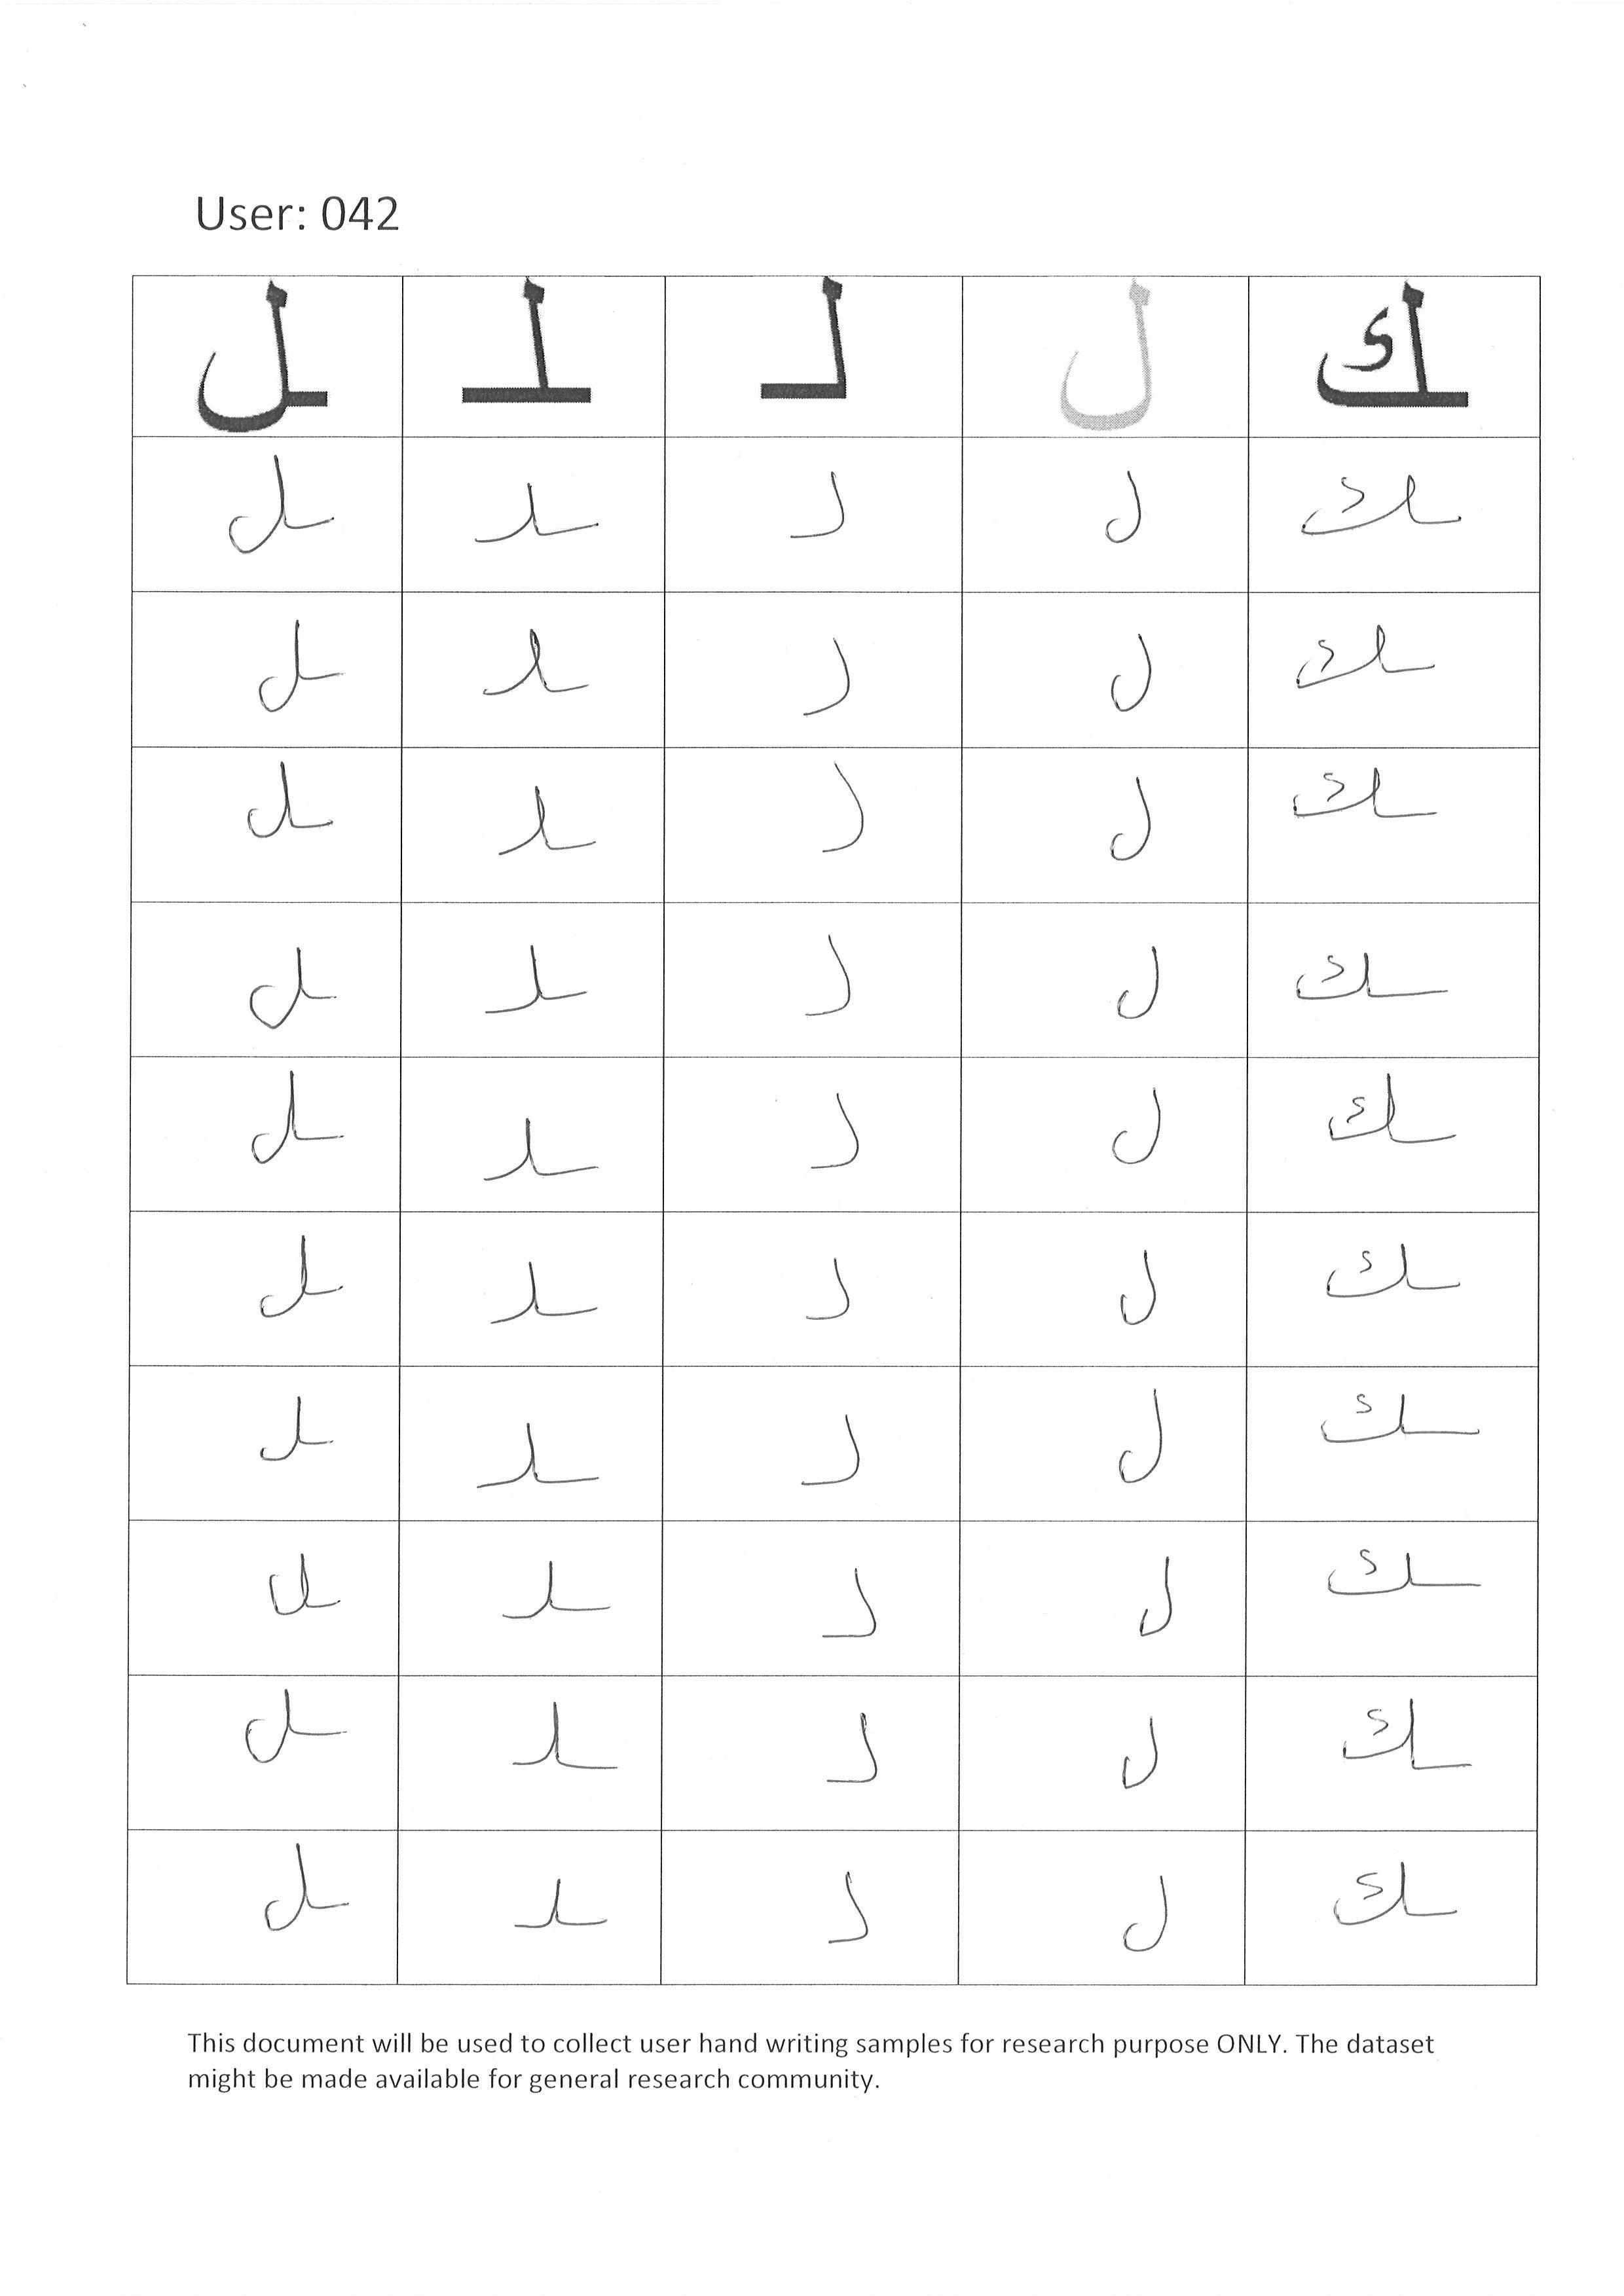 User: 042
ـك ل لـ ـلـ ـل
ـك ل لـ ـلـ ـل
ـك ل لـ ـلـ ـل
ـك ل لـ ـلـ ـل
ـك ل لـ ـلـ ـل
ـك ل لـ ـلـ ـل
ـك ل لـ ـلـ ـل
ـك ل لـ ـلـ ـل
ـك ل لـ ـلـ ـل
ـك ل لـ ـلـ ـل
ـك ل لـ ـلـ ـل
This document will be used to collect user hand writing samples for research purpose ONLY. The dataset
might be made available for general research community.